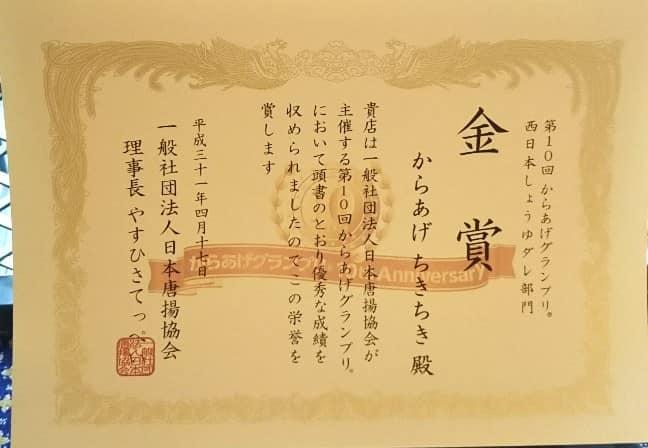 第10回 からあげグランプリ®
西日本しょうゆダレ部門
金賞
からあげ ちきちき 殿
貴店は一般社団法人日本唐揚協会が
主催する第10回からあげグランプリ®
において頭書のとおり優秀な成績を
収められましたのでこの栄誉を
賞します
平成三十一年四月十七日
一般社団法人日本唐揚協会
理事長 やすひさてっぺい
からあげグランプリ 10th Anniversary